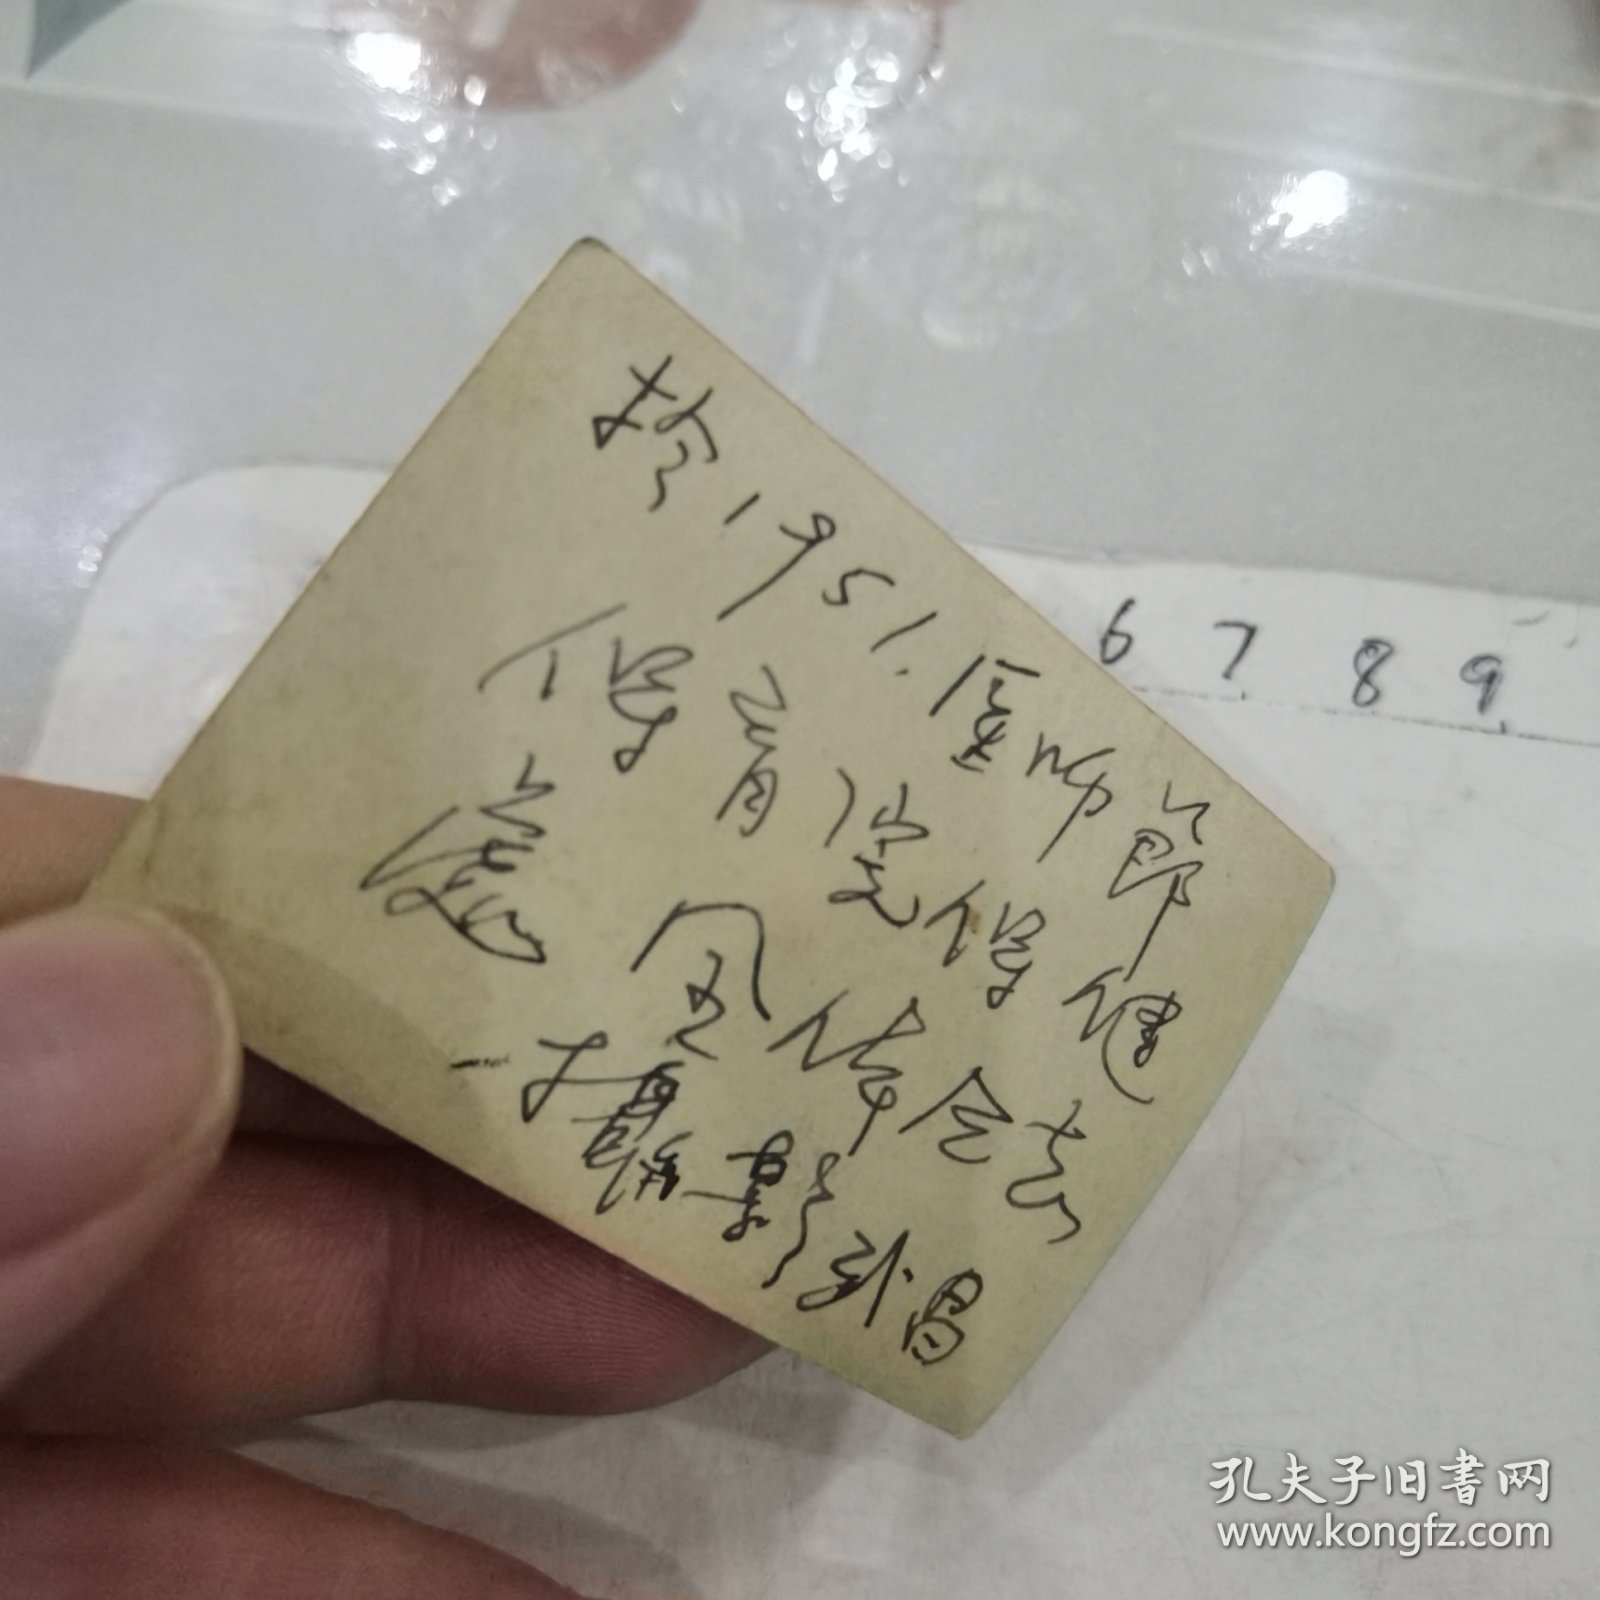 於1951.医师節
保育院保健
處全体合影
摄影武昌
6 7 8 9
孔夫子旧書网
www.kongfz.com